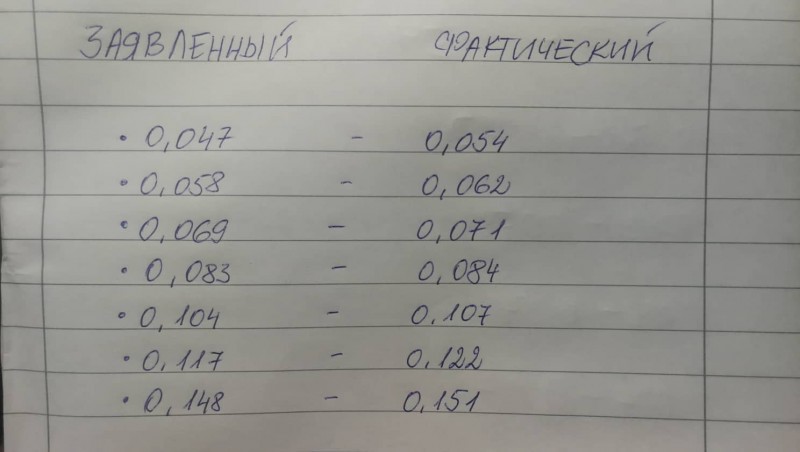 ЗАЯВЛЕННЫЙ ФАКТИЧЕСКИЙ
• 0,047 - 0,054
• 0,058 - 0,062
• 0,069 - 0,071
• 0,083 - 0,084
• 0,104 - 0.107
• 0,117 - 0.122
• 0,148 - 0.151